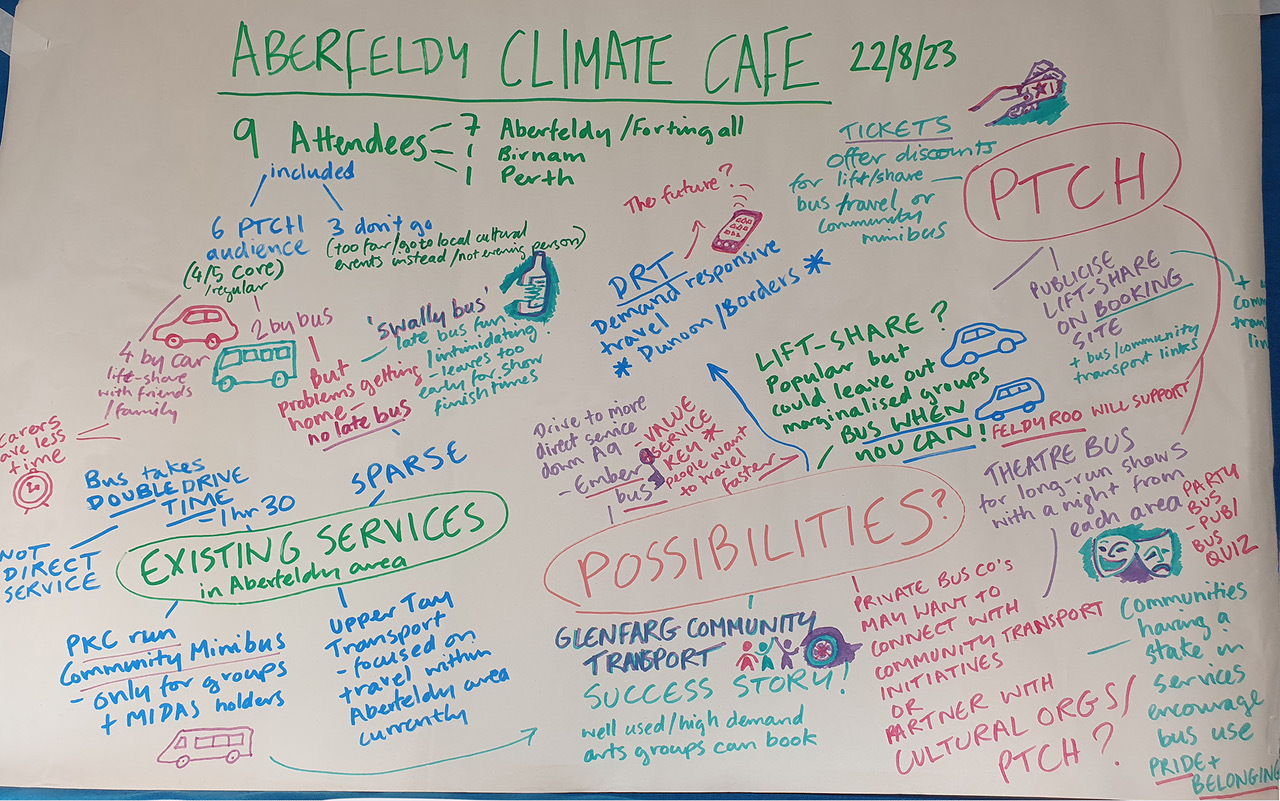 ABERFELDY CLIMATE CAFE 22/8/23
9 Attendees
7 Aberfeldy / Fortingall
1 Birnam
1 Perth
included
6 PTCH
audience
(4/5 core)
/regular
3 don't go
(too far/go to local cultural
events instead/not evening person)
4 by car
lift-share
with friends
/family
2 by bus
But
problems getting
home -
no late bus
'swally bus'
late bus fun
/intimidating!
- leaves too
early for show
finish times
Carers
have less
time
Bus takes
DOUBLE DRIVE
TIME
- 1hr 30
SPARSE
NOT
DIRECT
SERVICE
EXISTING SERVICES
in Aberfeldy area
PKC run
Community Minibus
- only for groups
+ MIDAS holders
Upper Tay
Transport
- focused on
travel within
Aberfeldy area
currently
The future?
DRT
Demand responsive
travel
* Dunoon/Borders *
Drive to more
direct service
down A9
- Ember
bus
- VALUE
SERVICE
KEY *
people want
to travel
faster
LIFT-SHARE?
Popular but
could leave out
marginalised groups
BUS WHEN
YOU CAN!
POSSIBILITIES?
GLENFARG COMMUNITY
TRANSPORT
SUCCESS STORY!
well used/high demand
arts groups can book
PRIVATE BUS CO'S
MAY WANT TO
CONNECT WITH
COMMUNITY TRANSPORT
INITIATIVES
OR
PARTNER WITH
CULTURAL ORGS/
PTCH?
TICKETS
offer discounts
for lift/share
bus travel or
community
minibus
PTCH
PUBLICISE
LIFT-SHARE
ON BOOKING
SITE
+ bus/community
transport links
FELDYROO WILL SUPPORT
THEATRE BUS
for long-run shows
with a night from
each area
PARTY
BUS
- PUB/
BUS
QUIZ
Communities
having a
stake in
services
encourage
bus use
PRIDE +
BELONGING